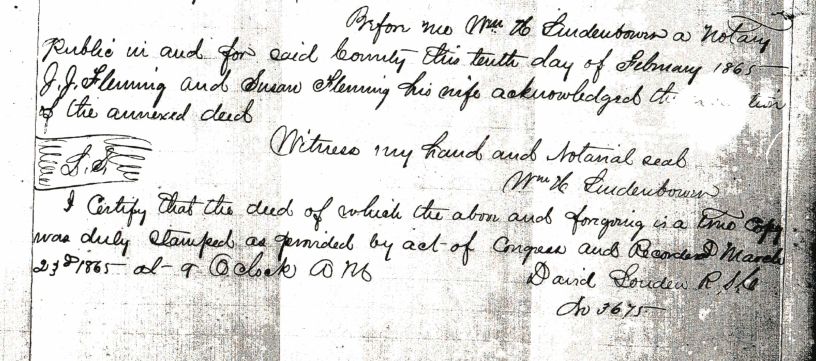 Before me Wm H Lindenbown a Notary
Public in and for said County this tenth day of February 1865
J. J. Fleming and Susan Fleming his wife acknowledged th
of the annexed deed
Witness my hand and Notarial seal
L.S.
Wm H Lindenbown
I Certify that the deed of which the above and forgoing is a true copy
was duly stamped as provided by act of Congress and Recorded March
23d 1865 at 9 Oclock A M
David Louden R.S.Co
No 3675